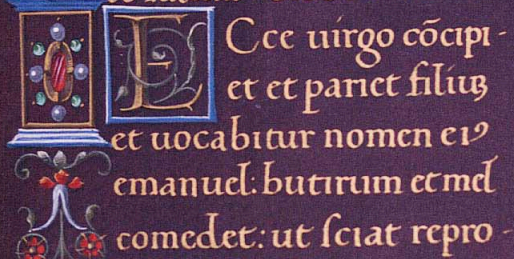 Ecce uirgo cōcipi-
et et pariet filiuꝫ
et uocabitur nomen eiꝰ
emanuel: butirum et mel
comedet: ut sciat repro-